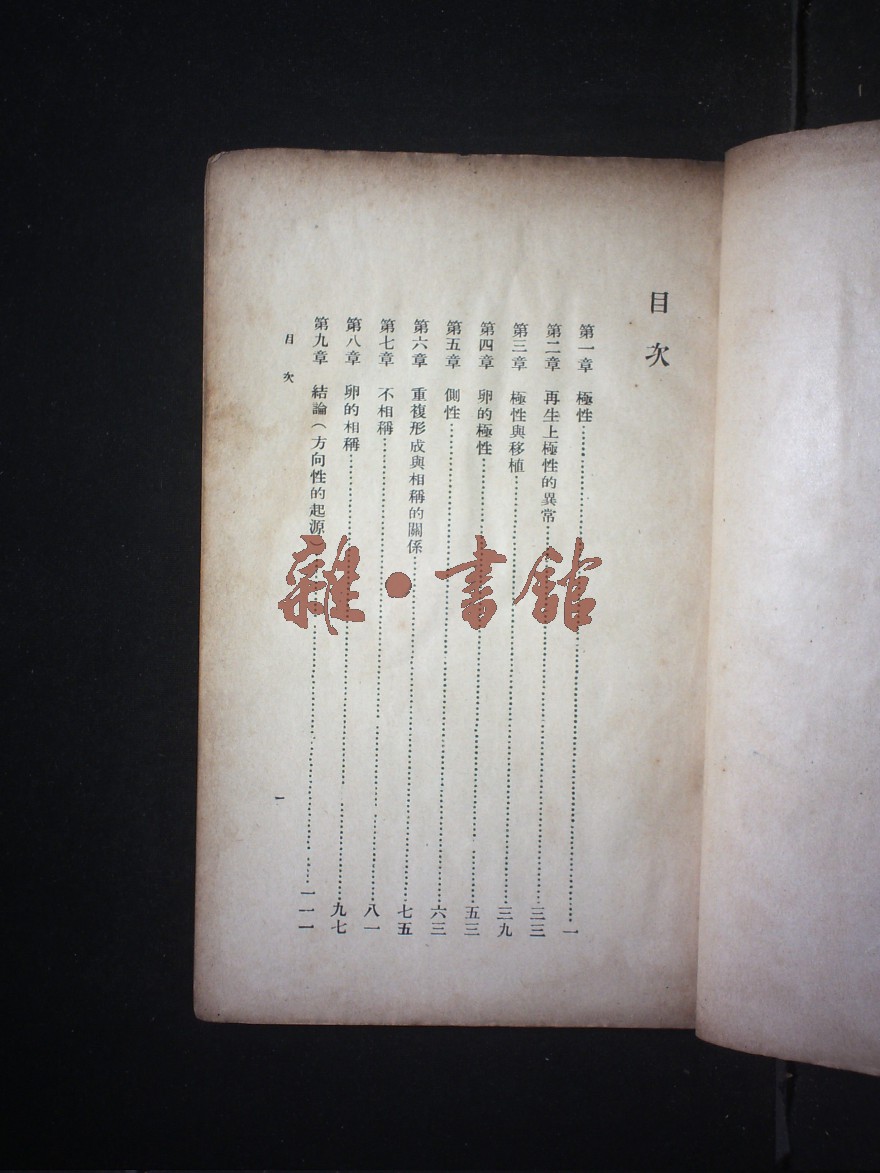 目次
第一章　極性……一
第二章　再生上極性的異常……三三
第三章　極性與移植……三九
第四章　卵的極性……五三
第五章　側性……六三
第六章　重複形成與相稱的關係……七五
第七章　不相稱……八一
第八章　卵的相稱……九七
第九章　結論（方向性的起源）……一一一
目次
一
雜•書館